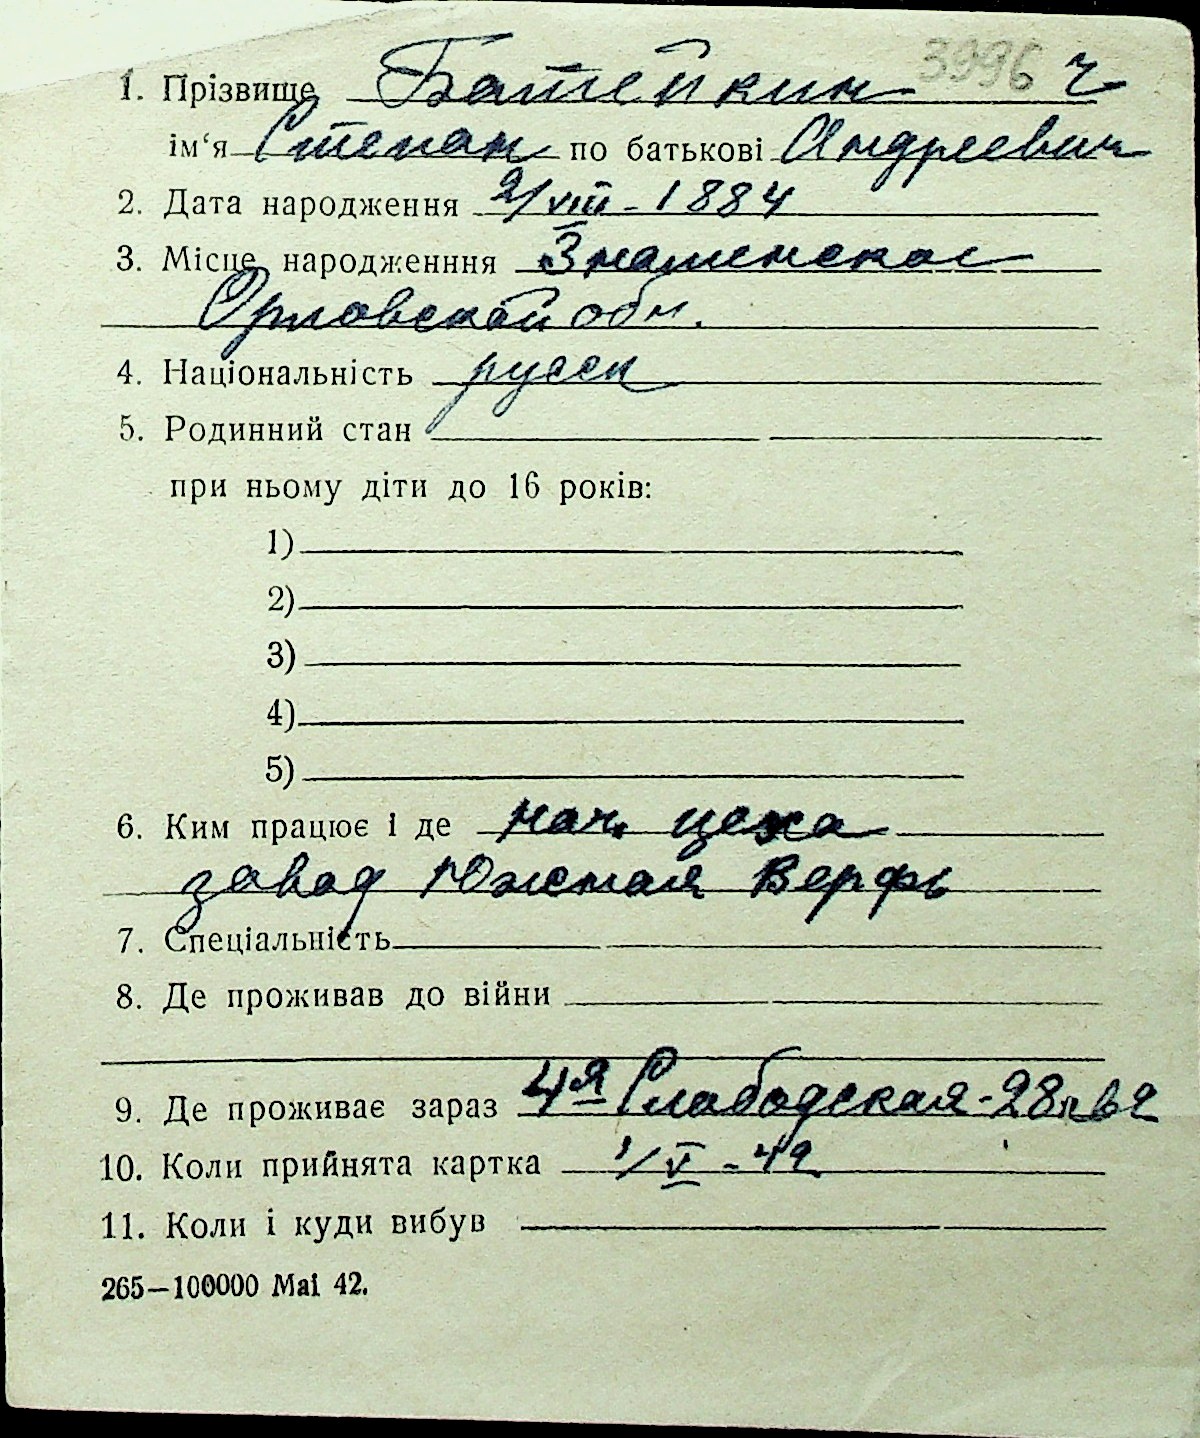 3996 ч
1. Прізвище Батейкин
ім‘я Степан по батькові Андреевич
2. Дата народження 2/VIII - 1884
3. Місце народженння Знаменское
Орловской обл.
4. Національність русск
5. Родинний стан
при ньому діти до 16 років:
1)
2)
3)
4)
5)
6. Ким працює і де нач. цеха
завод Южная Верфь
7. Спеціальність
8. Де проживав до війни
9. Де проживає зараз 4я Слабодская - 28
10. Коли прийнята картка 1/V - 42
11. Коли і куди вибув
265—100000 Mai 42.